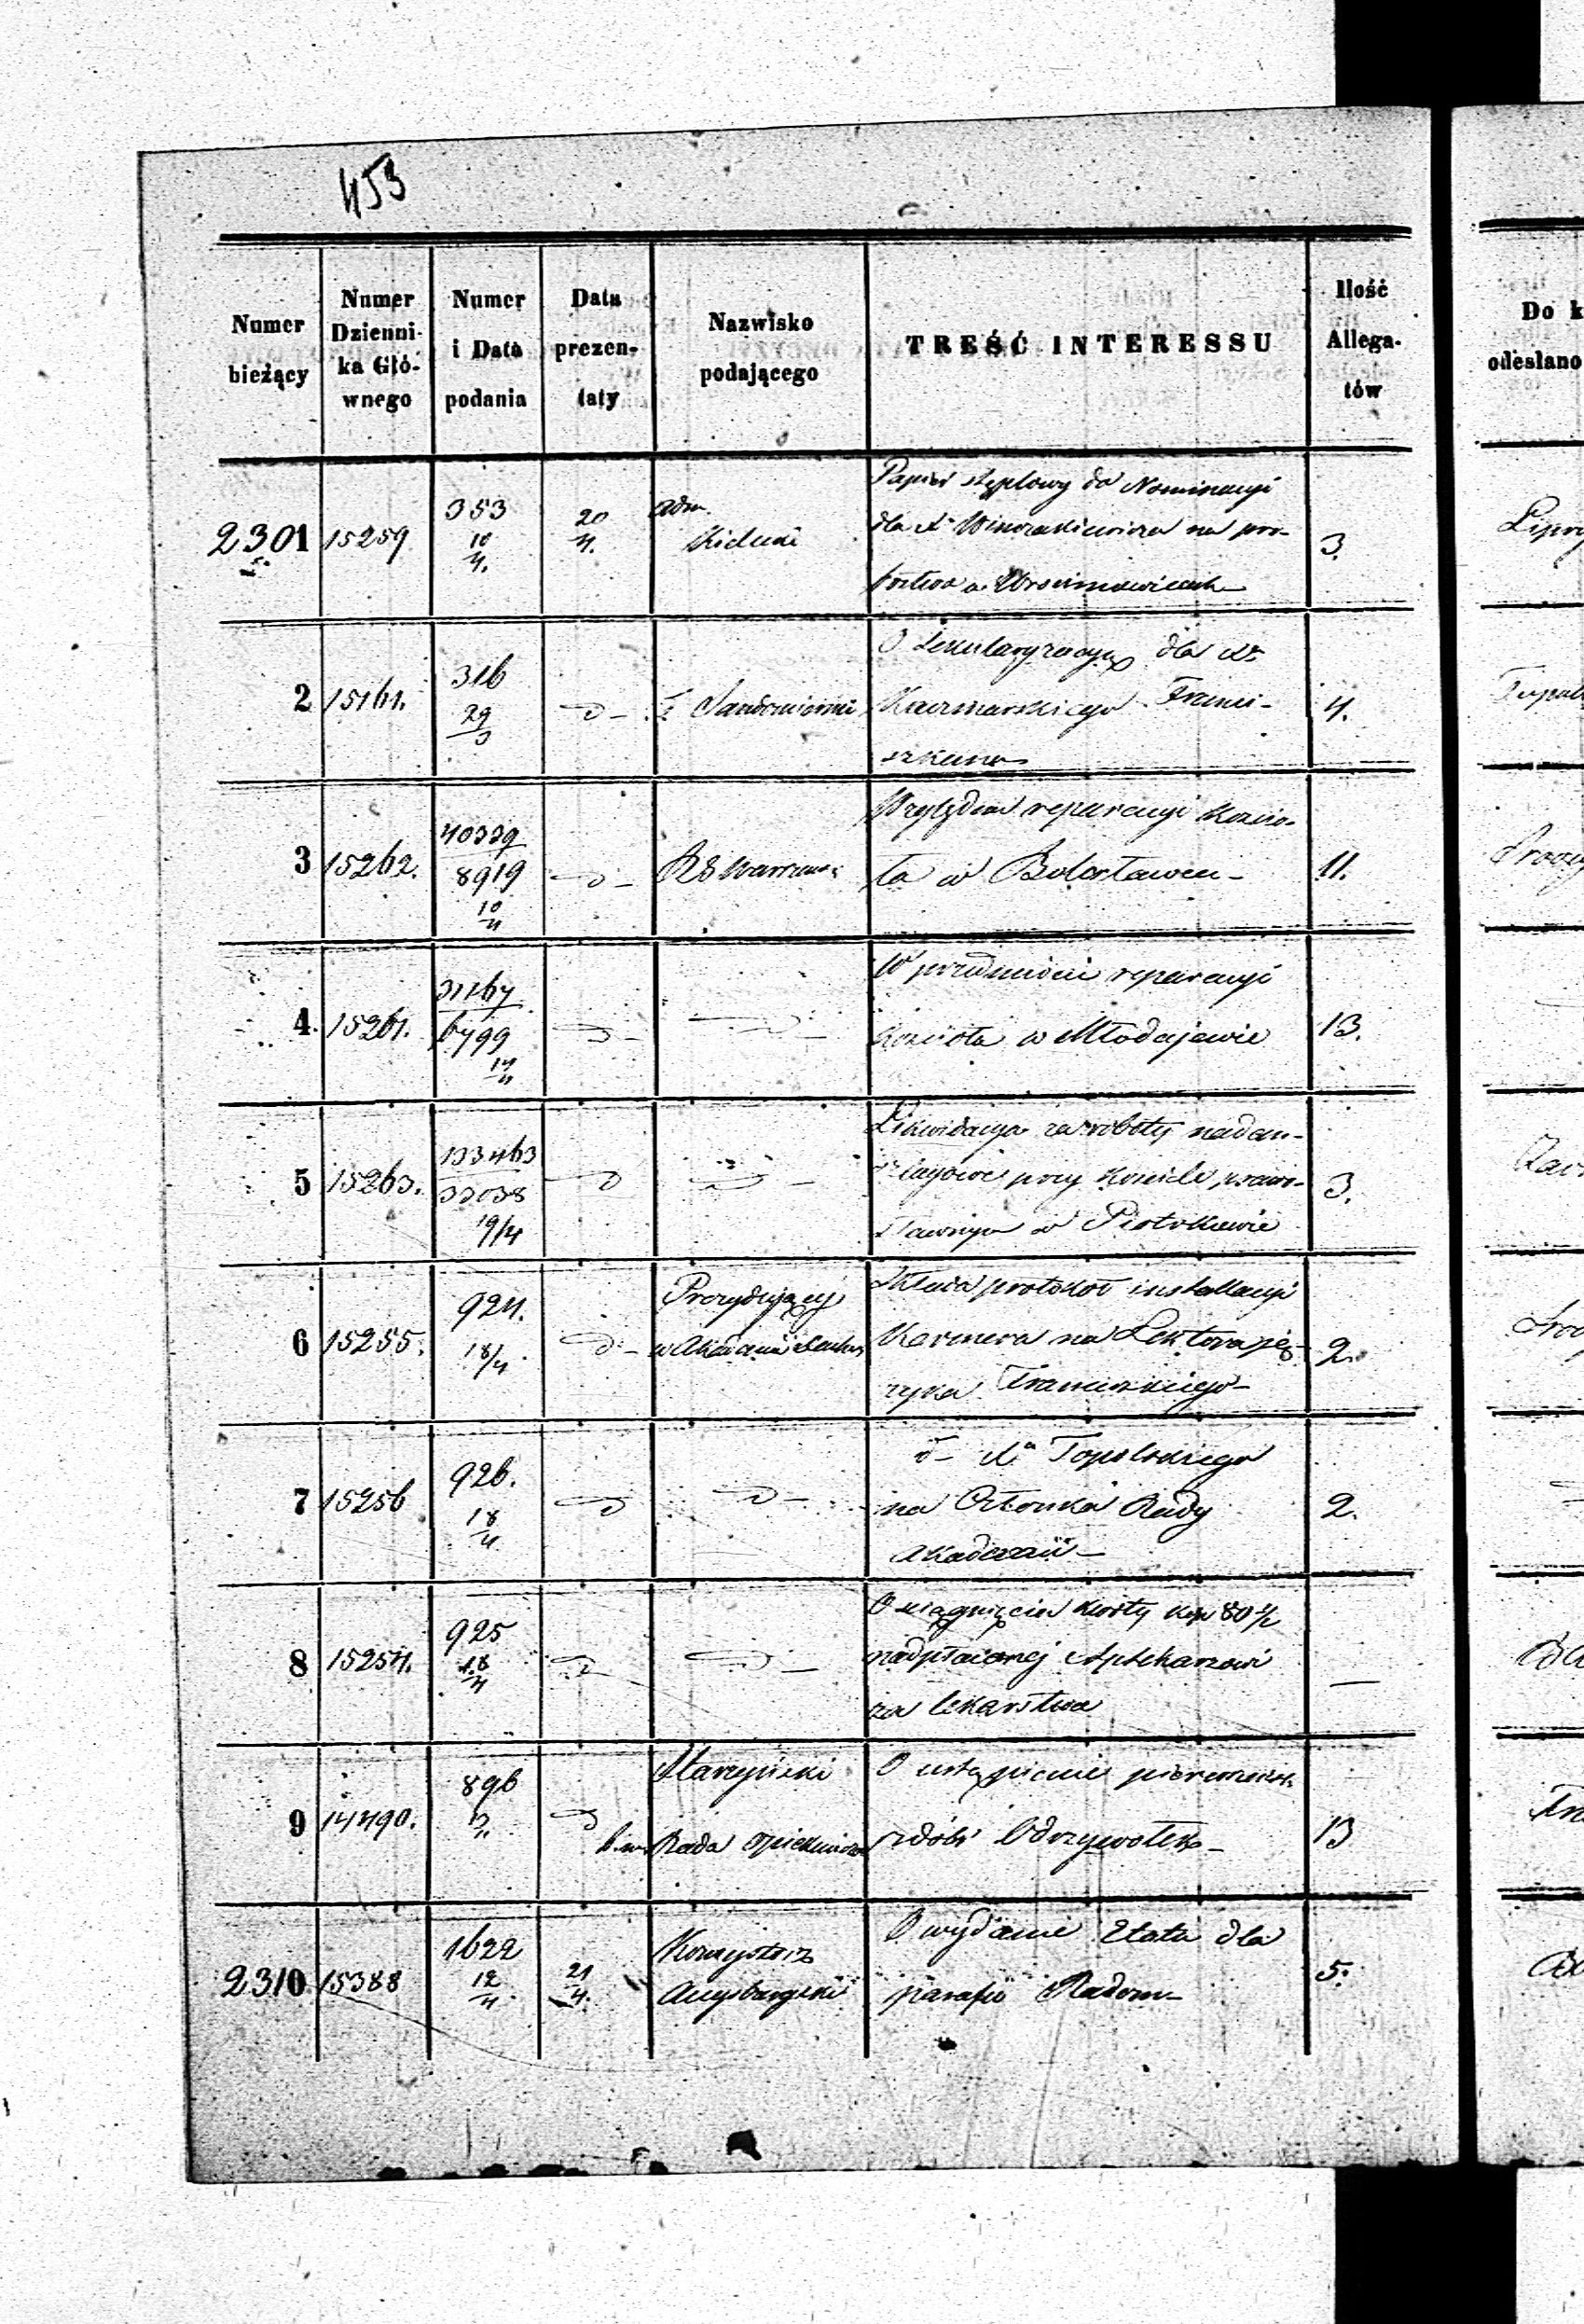 453
Numer bieżący
Numer Dzienni- ka Głó- wnego
Numer i Data podania
Data prezen- taty
Nazwisko podającego
TREŚĆ INTERESSU
Ilość Allega- tów
Do k
odesłano
2301 15259 353 10/4. 20/4. adm. Kielecki
Papier stęplowy do Nominacyi
dla Xa na pro-
bostwo w Wrocimowicach
3.
2 15161. 316 29/3 d- Sandomierski
O Sekularyzacyę dla Xa
Kaczmarskiego Franci-
szkana
4.
3 15262. 40339 8919 10/4 d- RG Warszaws
Względem reparacyi Kościo-
ła w Bolesławcu-
11.
4. 15261. 31167 6799 17/4 d- d-
W przedmiocie reparacyi
Kościoła w Młodojewie
13.
5 15263. 133463 33038 19/4 d d-
Likwidacya za roboty nadan-
szlagowe przy Kościele prawo-
sławnym w Piotrkowie
3.
6 15255. 924. 18/4. d- Prezydujący
w Akademii duchow
Składa protokoł installacyi
Karmera na Lektora ję-
zyka Francuzkiego-
2.
7 15256 926. 18/4 d d-
d- Xa Topolskiego
na Członka Rady
Akademii-
2.
8 15254. 925 18/4 d d-
O ściągnięcie kwoty kop 80 1/2
nadpłaconej Aptekarzowi
za lekarstwa
—
9 14490. 896 13/4 d
Rada opiekuńcza
O ustąpienie
z dóbr Odrzywołek-
13
2310 15388 1622 12/4. 21/4. Konsystorz
Augsburgski
O wydanie Etatu dla
parafii Radom-
5.